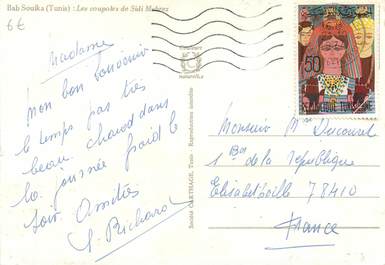 Bab Souika (Tunis) : Les coupoles de Sidi Mehrez
6€
Madame
Mon bon souvenir
le temps pas très
beau, chaud dans
la journée froid le
soir Amitiés
S. Richard
Couleurs
naturelles
Société CARTHAGE, Tunis - Reproductions interdites
50
Monsieur M Ducouret
1 Bd de la république
Elisabethville 78410
France